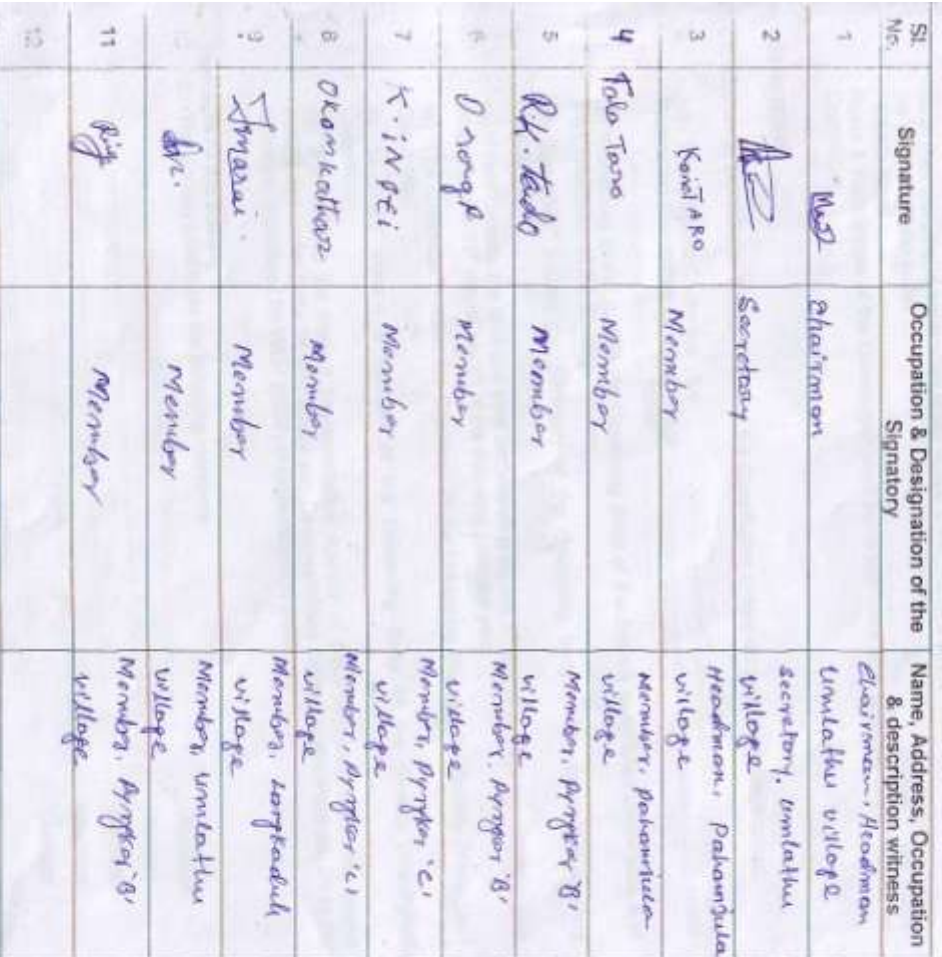 Sl. No.
Signature
Occupation & Designation of the Signatory
Name, Address, Occupation & description witness
1
Chairman
Chairman, Headman
Umlathu village
2
Secretary
Secretary, Umlathu
village
3
KoinTARO
Member
Headman, Pahamjula
village
4
Talo Taro
Member
Member,
village
5
RK. Tado
Member
Member, Pyngkor 'B'
village
6
Member
Member, Pyngkor 'B'
village
7
K. iNPEi
Member
Member, Pyngkor 'C'
village
8
Okomkathar
Member
Member, Pyngkor 'C'
village
9
Member
Member, Longkaduh
village
10
Member
Member, Umlathu
village
11
Member
Member, Pyngkor 'B'
village
12